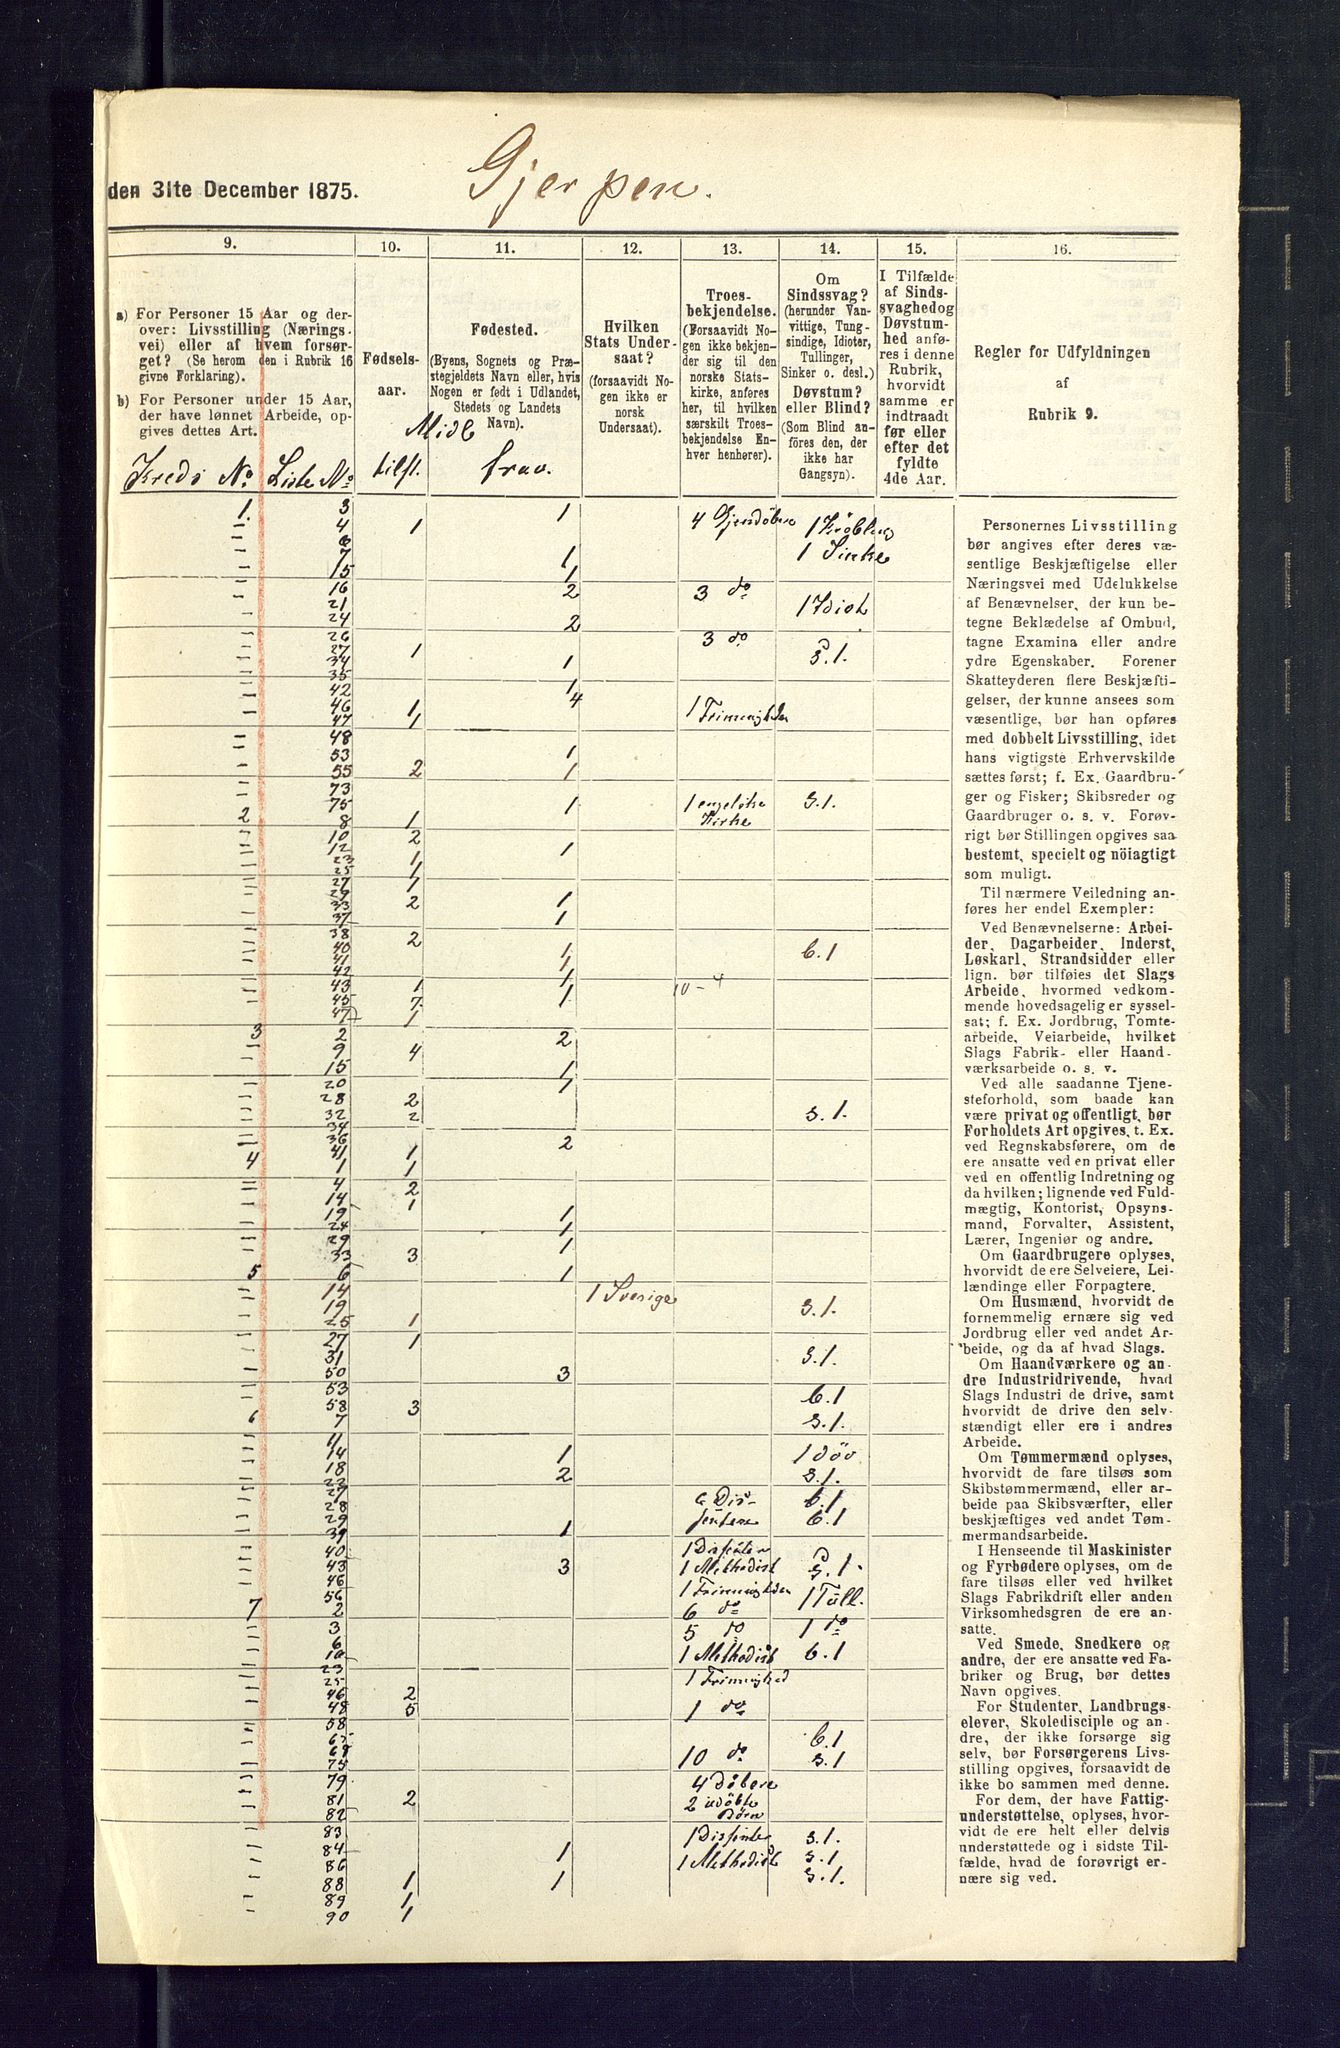 den 31te December 1875.
Gjerpen.
9.
a) For Personer 15 Aar og der-
over: Livsstilling (Nærings-
vei) eller af hvem forsør-
get? (Se herom den i Rubrik 16
givne Forklaring).
b) For Personer under 15 Aar,
der have lønnet Arbeide, op-
gives dettes Art.
Kreds No. Liste No
10.
Fødsels-
aar.
Midl
tilst.
11.
Fødested.
(Byens, Sognets og Præ-
stegjeldets Navn eller, hvis
Nogen er født i Udlandet,
Stedets og Landets
Navn).
frav.
12.
Hvilken
Stats Under-
saat?
(forsaavidt No-
gen ikke er
norsk
Undersaat).
13.
Troes-
bekjendelse.
(Forsaavidt No-
gen ikke bekjen-
der sig til den
norske Stats-
kirke, anføres
her, til hvilken
særskilt Troes-
bekjendelse En-
hver henhører).
14.
Om
Sindssvag?
(herunder Van-
vittige, Tung-
sindige, Idioter,
Tullinger,
Sinker o. desl.)
Døvstum?
eller Blind?
(Som Blind an-
føres den, der
ikke har
Gangsyn).
15.
I Tilfælde
af Sinds-
svaghedog
Døvstum-
hed anfø-
res i denne
Rubrik,
hvorvidt
samme er
indtraadt
før eller
efter det
fyldte
4de Aar.
16.
Regler for Udfyldningen
af
Rubrik 9.
1. 3 1 4 Gjendøbere
4 1 1 Krøbling
6
7 1 1 Sinke
15 1
16 2 3 do
21 1 Idiot
24 2
26 3 do
27 1
34 1 s.1.
35
42 1
46 1 4 1 Frimenigheden
47 1
48
53 1
55 2 1
73
75 1 1 engelske s.1.
Kirke
2 8 1
10 2
12 1
23 1
25 1
27 1
29
33 2 1
37 1
38 2
40 1 b.1
41 1
42 1
43 1 10-4
45 7 1
47 1
3 2 2
9 4
15 1
20 1
28 2
32 2 s.1.
34
36 2
41 1
4 1 1
4 2
14 1
19 1
24 1
29 1
33 3
5 6 1
14 1 Sverige
19 s.1.
25 1
27 1
31 s.1.
50 3
53 b.1
58 3
6 7 s.1.
11
14 1 1 døv
18 2 s.1.
22
27 6 Dis- b.1
28
29 sentere b.1
39 1
40 1 Dissenter
43 3 1 Methodist s.1
46
56 1 Frimenigheden 1 Tull.
7 2 6 do
3 5 do 1 do
6
10 1 Methodist b.1
23
25 1 Frimenighed
46 2
48 5 1 do
58
65 b.1
68 10 do s.1
75
79 4 Døbere
81 2 2 udøbte
82 Børn
83 1 Dissenter s.1.
84 1
86 1 Methodist s.1
88 1 1 s.1.
89 1
90 1
Personernes Livsstilling
bør angives efter deres væ-
sentlige Beskjæftigelse eller
Næringsvei med Udelukkelse
af Benævnelser, der kun be-
tegne Beklædelse af Ombud,
tagne Examina eller andre
ydre Egenskaber. Forener
Skatteyderen flere Beskjæfti-
gelser, der kunne ansees som
væsentlige, bør han opføres
med dobbelt Livsstilling, idet
hans vigtigste Erhvervskilde
sættes først; f. Ex. Gaardbru-
ger og Fisker; Skibsreder og
Gaardbruger o. s. v. Forøv-
rigt bør Stillingen opgives saa
bestemt, specielt og nöiagtigt
som muligt.
Til nærmere Veiledning an-
føres her endel Exempler:
Ved Benævnelserne: Arbei-
der, Dagarbeider, Inderst,
Løskarl, Strandsidder eller
lign. bør tilføies det Slags
Arbeide, hvormed vedkom-
mende hovedsagelig er syssel-
sat; f. Ex. Jordbrug, Tomte-
arbeide, Veiarbeide, hvilket
Slags Fabrik- eller Haand-
værksarbeide o. s. v.
Ved alle saadanne Tjene-
steforhold, som baade kan
være privat og offentligt, bør
Forholdets Art opgives, t. Ex.
ved Regnskabsførere, om de
ere ansatte ved en privat eller
ved en offentlig Indretning og
da hvilken; lignende ved Fuld-
mægtig, Kontorist, Opsyns-
mand, Forvalter, Assistent,
Lærer, Ingeniør og andre.
Om Gaardbrugere oplyses,
hvorvidt de ere Selveiere, Lei-
lændinge eller Forpagtere.
Om Husmænd, hvorvidt de
fornemmelig ernære sig ved
Jordbrug eller ved andet Ar-
beide, og da af hvad Slags.
Om Haandværkere og an-
dre Industridrivende, hvad
Slags Industri de drive, samt
hvorvidt de drive den selv-
stændigt eller ere i andres
Arbeide.
Om Tømmermænd oplyses,
hvorvidt de fare tilsøs som
Skibstømmermænd, eller ar-
beide paa Skibsværfter, eller
beskjæftiges ved andet Tøm-
mermandsarbeide.
I Henseende til Maskinister
og Fyrbødere oplyses, om de
fare tilsøs eller ved hvilket
Slags Fabrikdrift eller anden
Virksomhedsgren de ere an-
satte.
Ved Smede, Snedkere og
andre, der ere ansatte ved Fa-
briker og Brug, bør dettes
Navn opgives.
For Studenter, Landbrugs-
elever, Skoledisciple og an-
dre, der ikke forsørge sig
selv, bør Forsørgerens Livs-
stilling opgives, forsaavidt de
ikke bo sammen med denne.
For dem, der have Fattig-
understøttelse, oplyses, hvor-
vidt de ere helt eller delvis
understøttede og i sidste Til-
fælde, hvad de forøvrigt er-
nære sig ved.